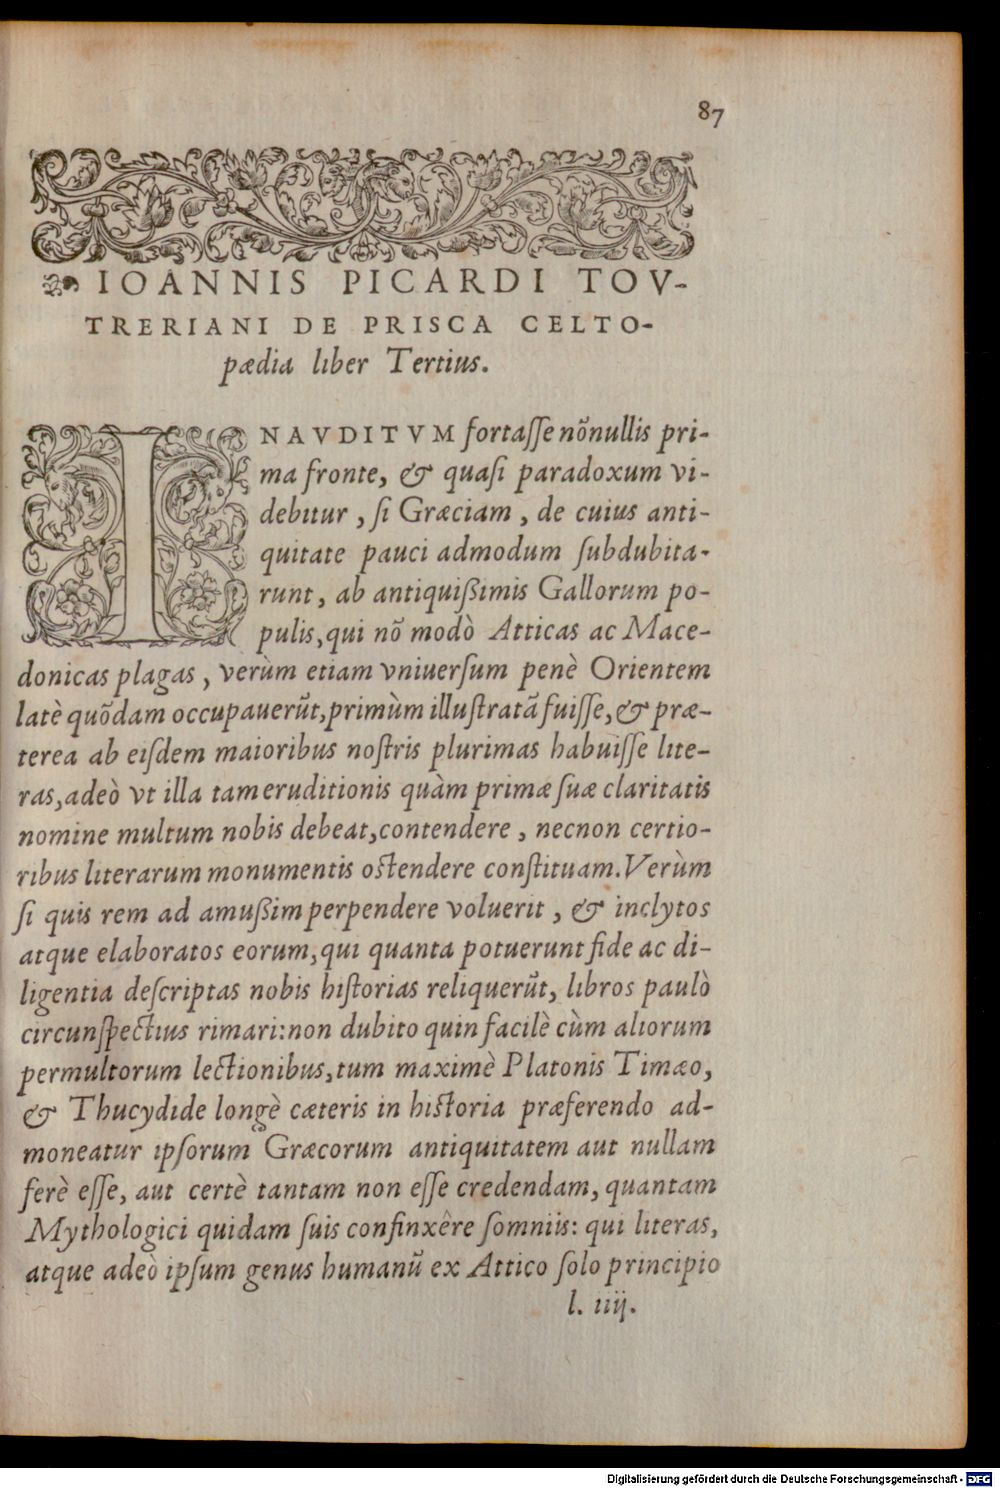 87
IOANNIS PICARDI TOV-
TRERIANI DE PRISCA CELTO-
pædia liber Tertius.
INAVDITVM fortaſſe nõnullis pri-
ma fronte, & quaſi paradoxum vi-
debitur, ſi Græciam, de cuius anti-
quitate pauci admodum ſubdubita-
runt, ab antiquißimis Gallorum po-
pulis, qui nõ modò Atticas ac Mace-
donicas plagas, verùm etiam vniuerſum penè Orientem
latè quõdam occupauerũt, primùm illuſtratã fuiſſe, & præ-
terea ab eiſdem maioribus noſtris plurimas habuiſſe lite-
ras, adeò vt illa tam eruditionis quàm primæ ſuæ claritatis
nomine multum nobis debeat, contendere, necnon certio-
ribus literarum monumentis oſtendere conſtituam. Verùm
ſi quis rem ad amußim perpendere voluerit, & inclytos
atque elaboratos eorum, qui quanta potuerunt fide ac di-
ligentia deſcriptas nobis hiſtorias reliquerũt, libros paulò
circunſpectius rimari: non dubito quin facilè cùm aliorum
permultorum lectionibus, tum maximè Platonis Timæo,
& Thucydide longè cæteris in hiſtoria præferendo ad-
moneatur ipſorum Græcorum antiquitatem aut nullam
ferè eſſe, aut certè tantam non eſſe credendam, quantam
Mythologici quidam ſuis confinxêre ſomniis: qui literas,
atque adeò ipſum genus humanũ ex Attico ſolo principio
l. iiij.
Digitalisierung gefördert durch die Deutsche Forschungsgemeinschaft - DFG